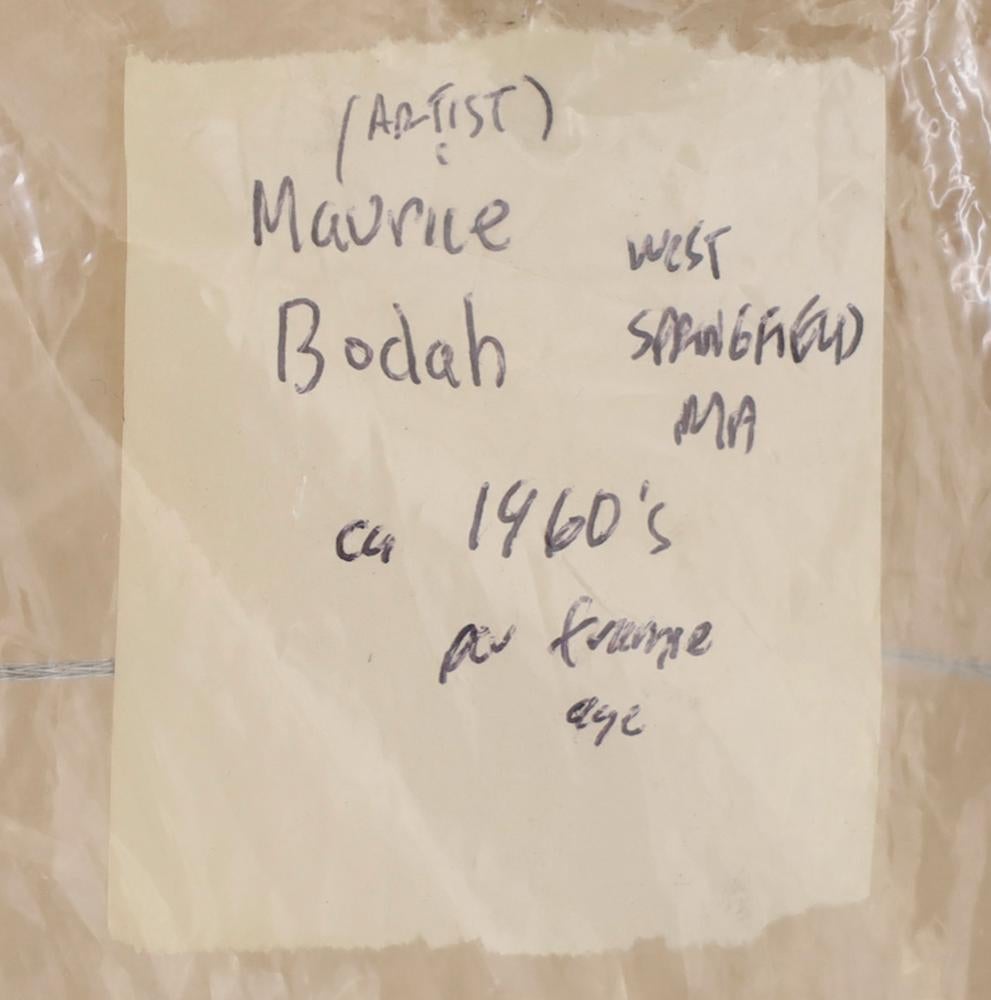 (ARTIST)
Maurice
Bodah
WEST
SPRINGFIELD
MA
ca 1960's
per frame
age